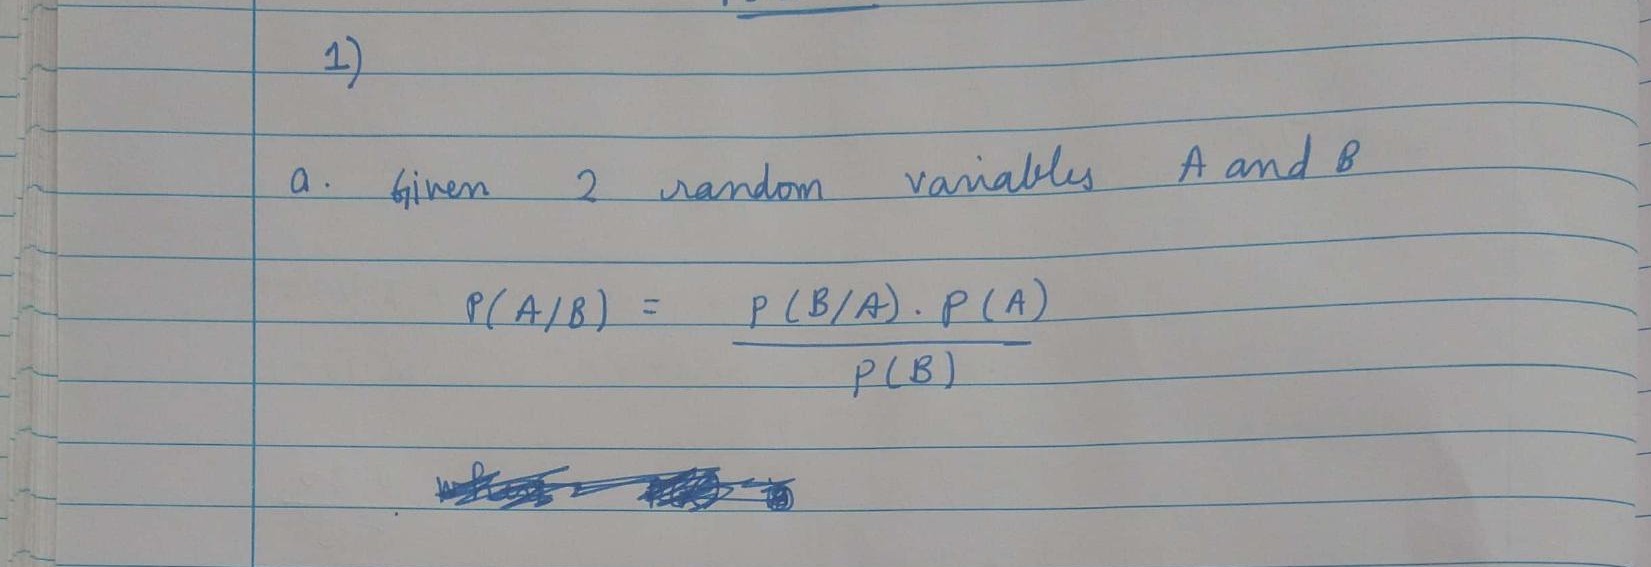 1)
a. Given 2 random variables A and B
P(A/B) = P(B/A) . P(A)
P(B)